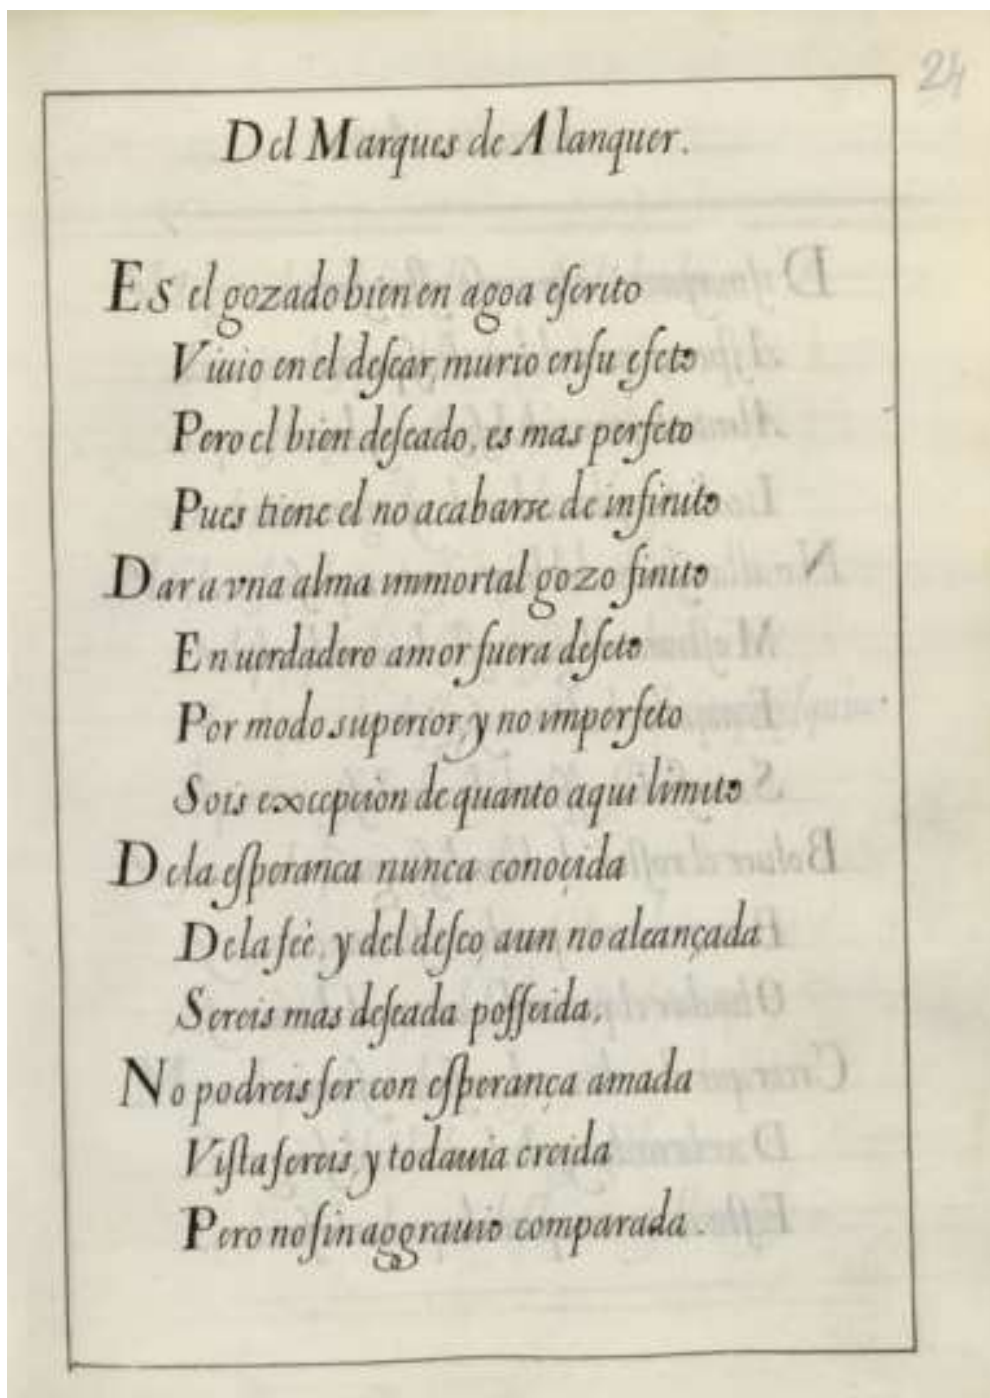 24
Del Marques de Alanquer.
Es el gozado bien en agoa eſcrito
Viuio en el deſear, murio en ſu efeto
Pero el bien deſeado, es mas perfeto
Pues tiene el no acabarse de infinito
Dar a vna alma immortal gozo finito
En uerdadero amor fuera defeto
Por modo superior, y no imperfeto
Sois excepcion de quanto aqui limito
De la eſperanca nunca conoçida
De la feè, y del deſeo aun no alcançada
Sereis mas deſeada poſſeida,
No podreis ſer con eſperança amada
Viſta ſereis, y todauia creida
Pero no ſin aggrauio comparada.